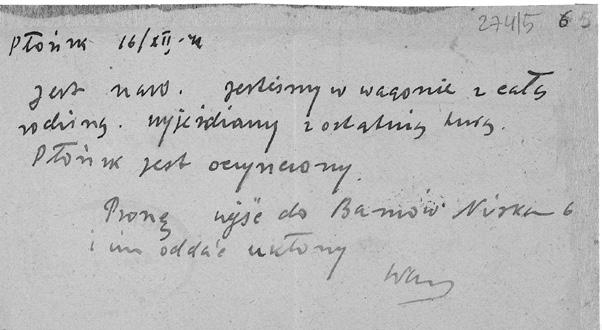 274/5 65
Płońsk 16/XII-
jest nas . jesteśmy w wagonie z całą
rodziną. wyjeżdżamy z ostatnią turą.
Płońsk jest oczyszczony.
Proszę wyjść do Bamów Niska 6
i im oddać ukłony